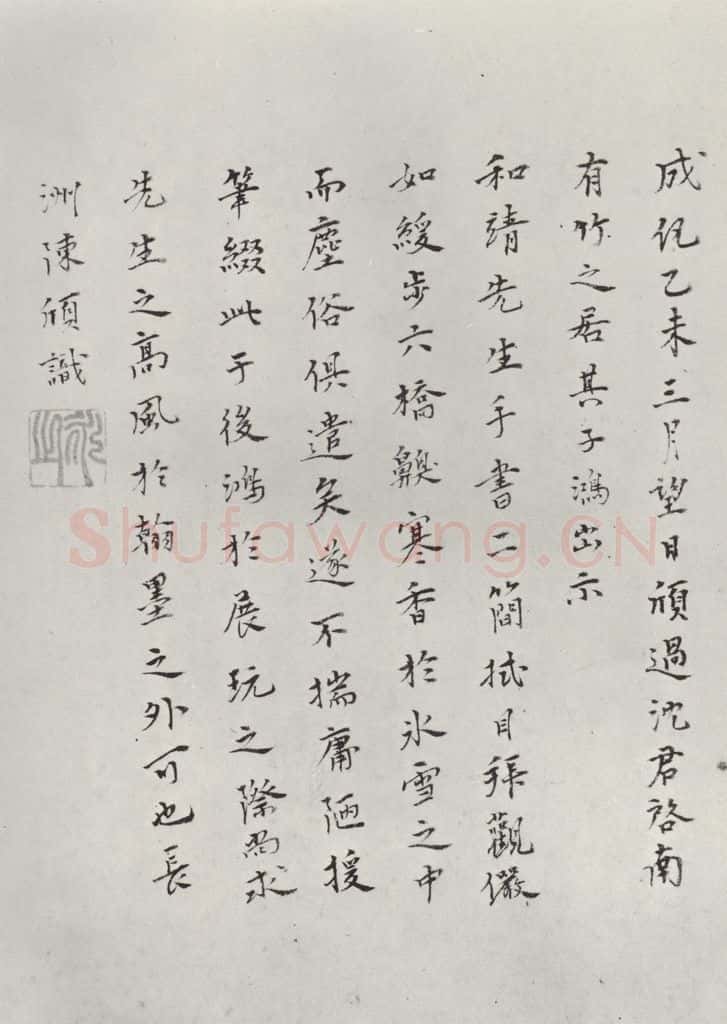 成化乙未三月望日頎過沈君啓南
有竹之居其子鴻出示
和靖先生手書二簡拭目拜觀儼
如緩步六橋齅寒香於氷雪之中
而塵俗俱遣矣遂不揣庸陋援
筆綴此于後鴻於展玩之際當求
先生之高風於翰墨之外可也長
洲陳頎識
Shufawang.CN